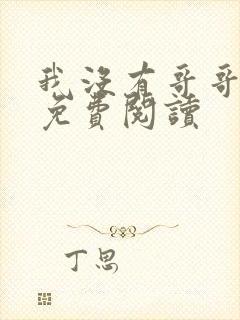 我沒有哥哥
免費閱讀
丁思